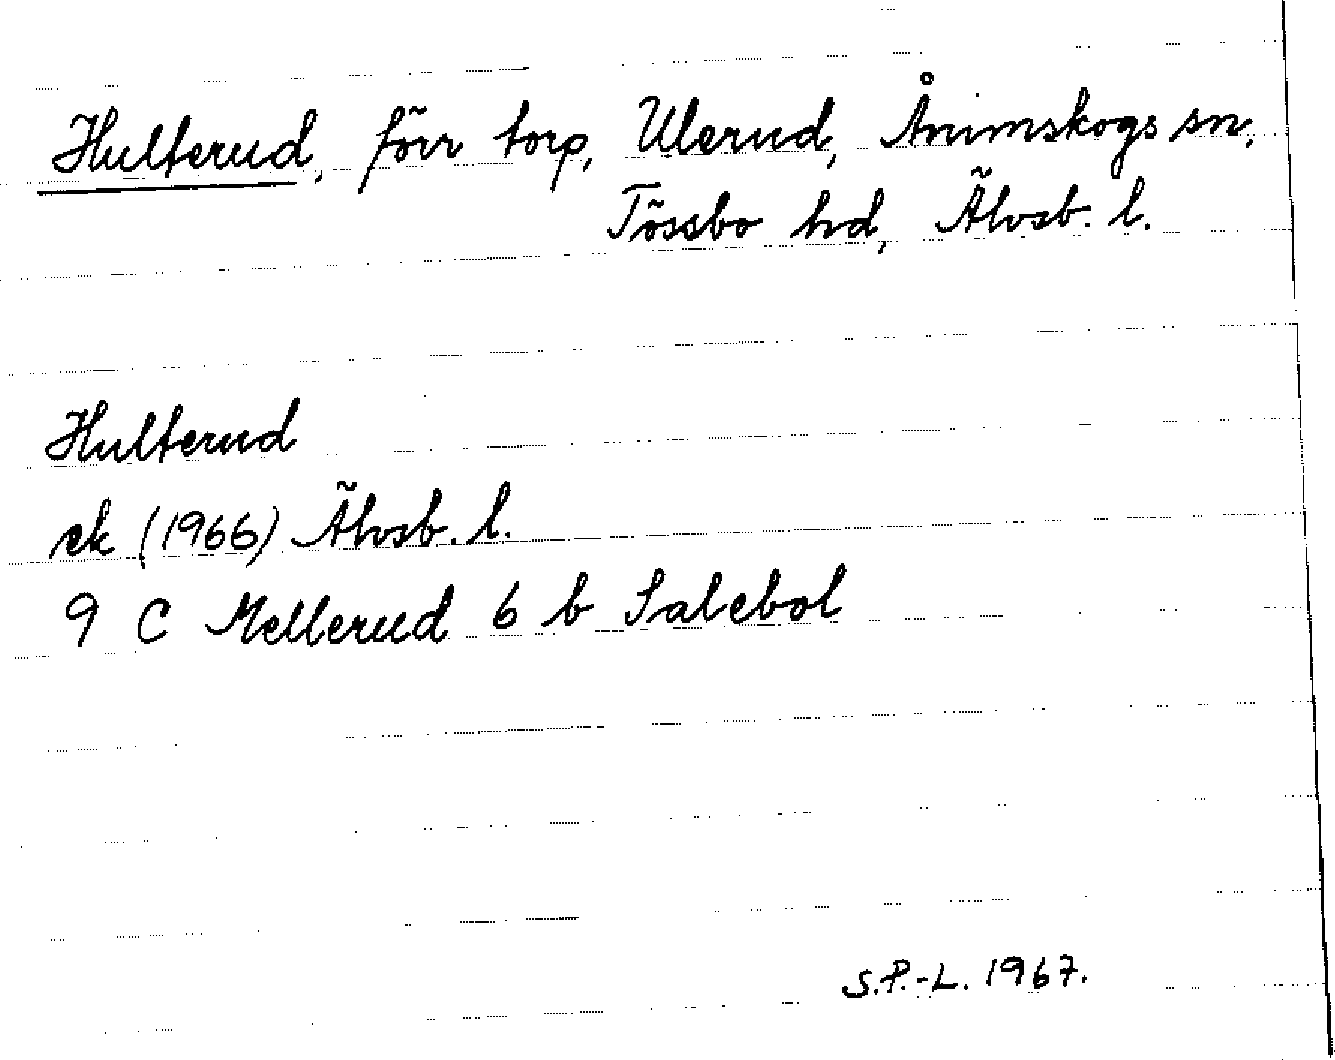 Hulterud, förr torp, Ulerud, Ånimskogs sn,
Tössbo hd, Älvsb. l.
Hulterud
ek (1966) Älvsb. l.
9 C Mellerud 6 b Salebol
S.P.-L. 1967.